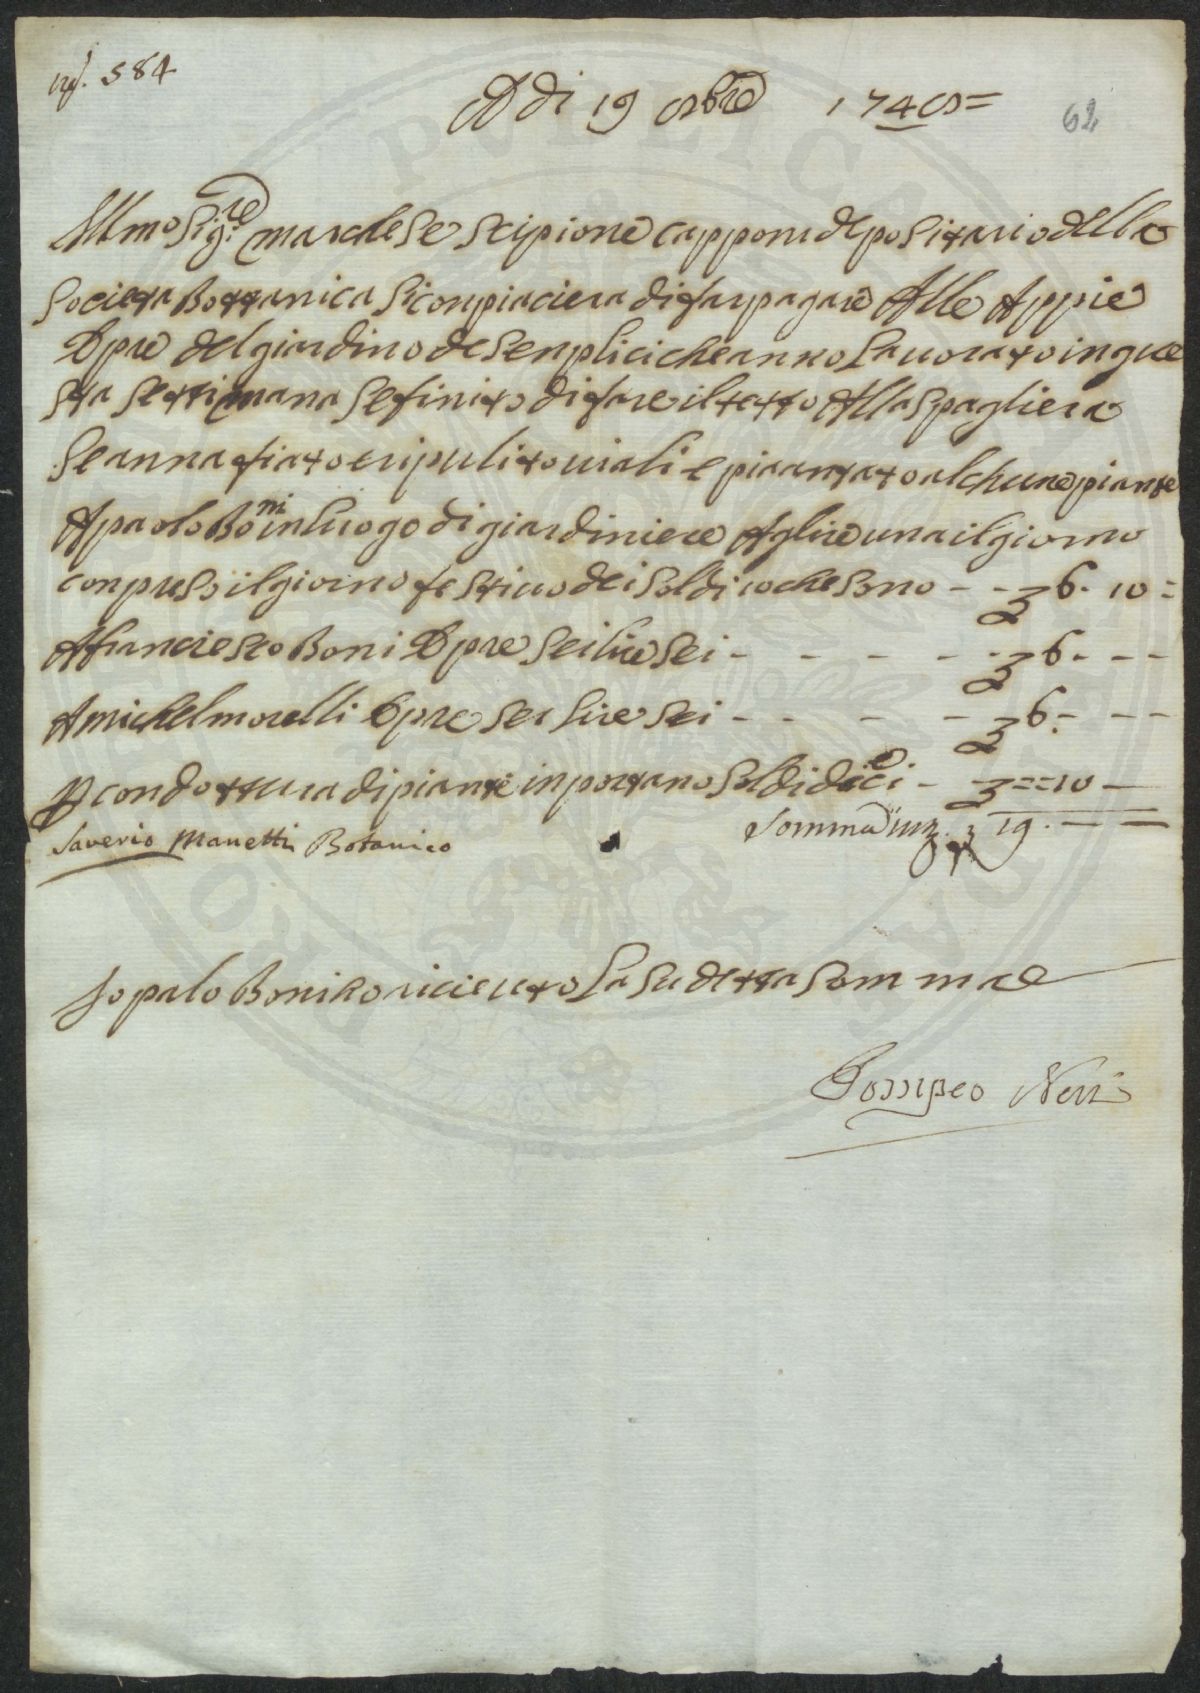 n.° 584
A di 19 8bre 1749=
62
Ill mo Sig.re marchese Scipione capponi depositario della
Societta Bottanica Siconpiaciera di far pagare Alle Appie
Opre del giardino de Senplici che anno Lavorato in que
sta settimana Se finito di fare il tetto Alla Spagliera
Se anna fiato e ripulito viali e piaantato alchune piante
A paolo Boni in luogo di giardiniere A glire una il giorno
conpreso il giorno festivo de i Soldi 10 che sono - - 6. 10 =
A franciesco Boni Opre Sei lire Sei - - - - - 6. - -
A michel morelli Opre sei lire sei - - - - 6. - - -
P condottura di piante inportano Soldi dieci - ==10 —
Saverio Manetti Botanico
Somma in 19. — —
Io palo Boni horicieuto La su detta Somma
Pompeo Neri